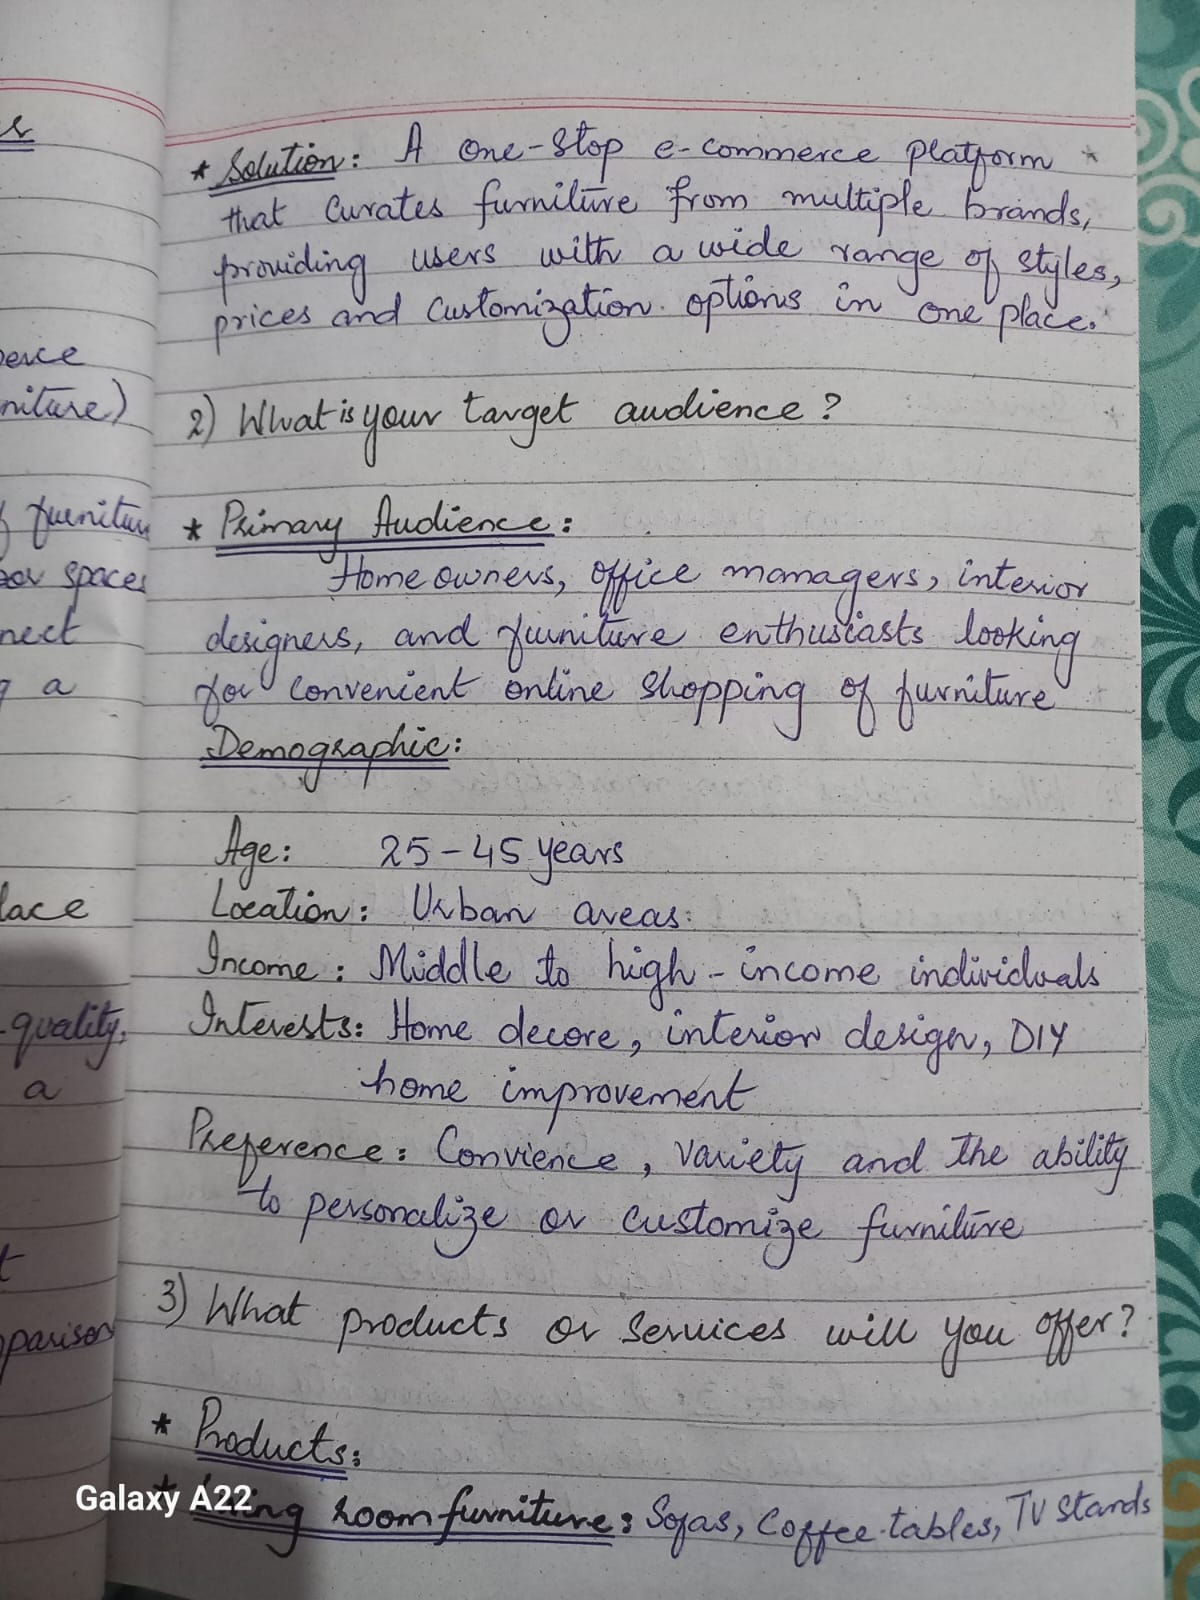 * Solution: A one-stop e-commerce platform *
that curates furniture from multiple brands,
providing users with a wide range of styles,
prices and customization options in one place.
2) What is your target audience?
* Primary Audience:
Home owners, office managers, interior
designers, and furniture enthusiasts looking
for convenient online shopping of furniture
Demographic:
Age: 25-45 years
Location: Urban areas.
Income: Middle to high-income individuals
Interests: Home decore, interior design, DIY
home improvement
Preference: Convience, variety and the ability
to personalize or customize furniture
3) What products or services will you offer?
* Products:
* Living room furniture: Sofas, Coffee tables, TV stands
niture)
furnitur
spaces
nect
a
lace
quality,
a
parison
Galaxy A22